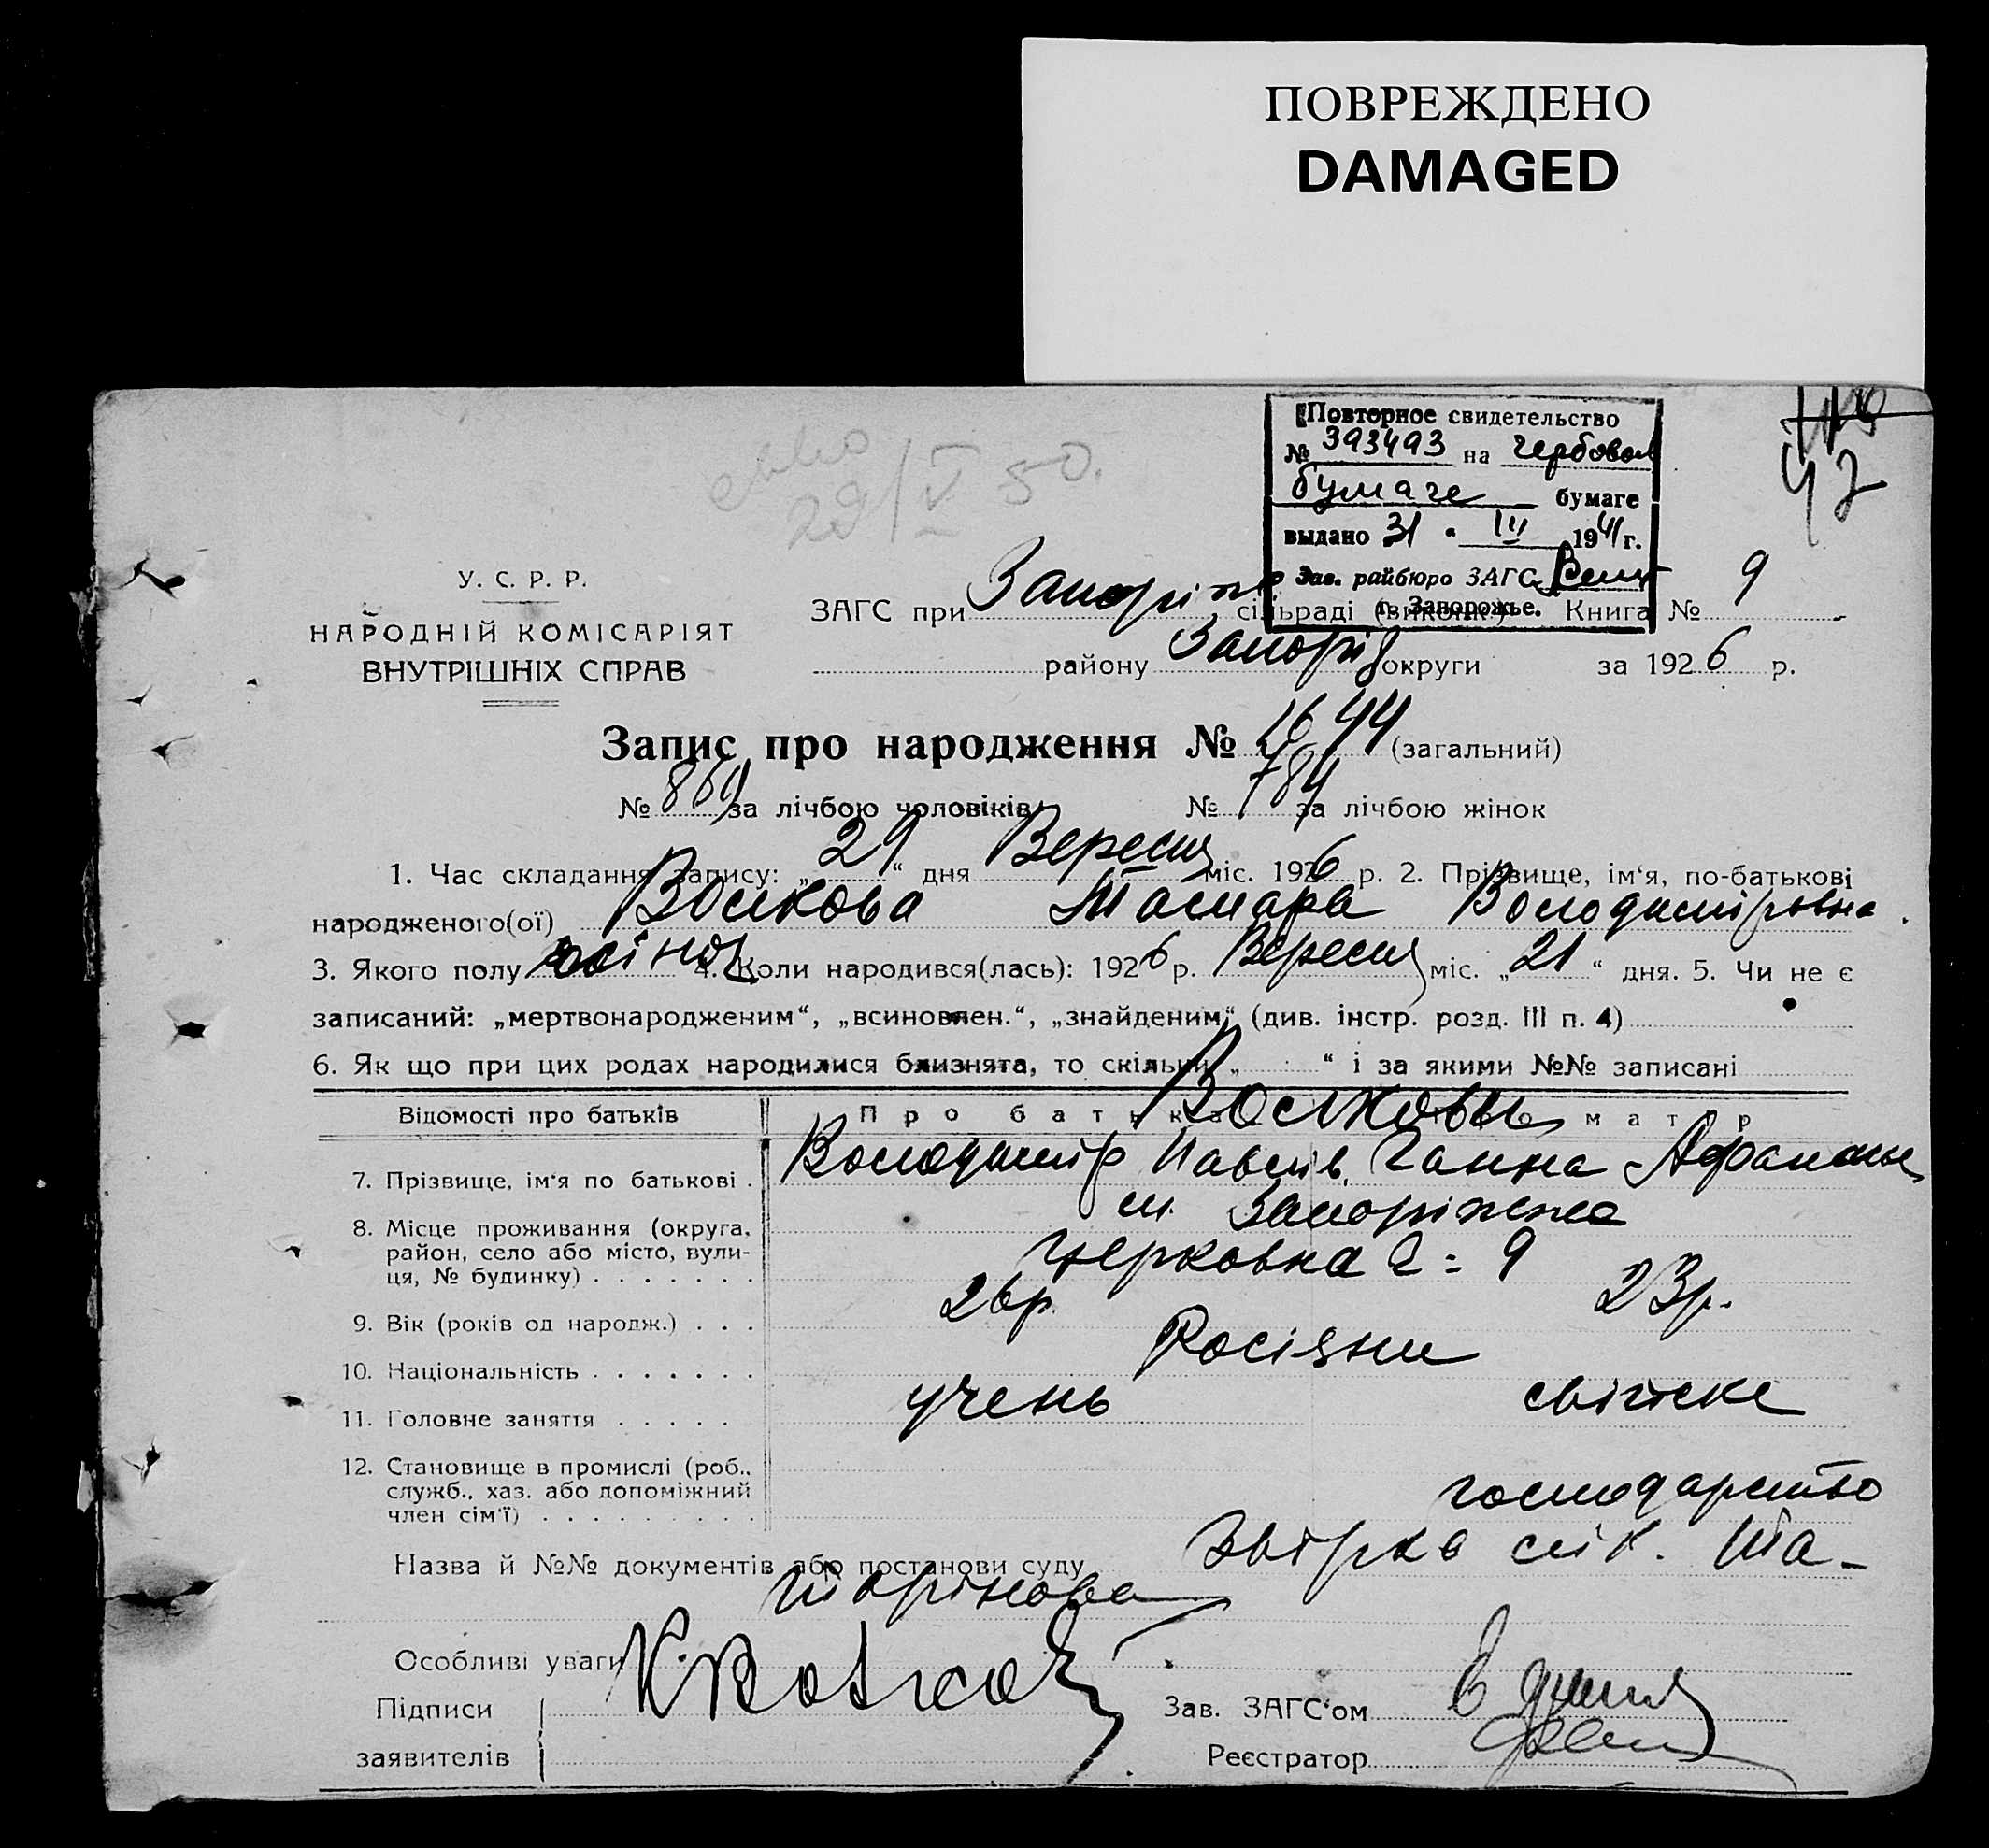 ПОВРЕЖДЕНО
DAMAGED
Повторное свидетельство
№ 393493 на гербовой
бумаге бумаге
выдано 31 " III 1941 г.
Зав. райбюро ЗАГС
г. Запорожье.
42
29/V 50.
У. С. Р. Р.
НАРОДНІЙ КОМІСАРІЯТ
ВНУТРІШНІХ СПРАВ
ЗАГС при Запоріж сільраді (виконк.) Книга № 9
району Запоріз округи за 1926 р.
Запис про народження № 1644 (загальний)
№ 860 за лічбою чоловіків № 784 за лічбою жінок
1. Час складання запису: „29“ дня Вересня міс. 1926 р. 2. Прізвище, ім‘я, по-батькові
народженого(ої) Воскова Тамара Володимірівна.
3. Якого полу жіноч 4. Коли народився(лась): 1926 р. Вересня міс. „21“ дня. 5. Чи не є
записаний: „мертвонародженим“, „всиновлен.“, „знайденим“ (див. інстр. розд. III п. 4)
6. Як що при цих родах народилися близнята, то скільки „ “ і за якими №№ записані
Відомості про батьків Про батька Про матір
Воскови
7. Прізвище, ім‘я по батькові . Володимір Павлів. Ганна Афанас
8. Місце проживання (округа, м. Запоріжжа
район, село або місто, вули-
ця, № будинку) . . . . . . . Церковна 2 = 9
9. Вік (років од народж.) . . . 26р. 23р.
10. Національність . . . . . . . Росіяни
11. Головне заняття . . . . . учень світске
12. Становище в промислі (роб.,
служб., хаз. або допоміжний господарство
член сім‘ї) . . . . . . . . .
Назва й №№ документів або постанови суду Звірка Ша-
Особливі уваги
Підписи Зав. ЗАГС‘ом
заявителів Реєстратор